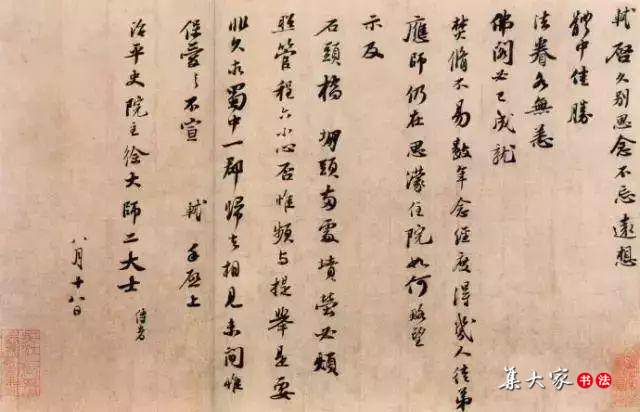 轼启久别思念不忘远想
體中佳勝
法眷各無恙
佛閣必已成就
焚脩不易數年念經度得幾人徒弟
應師仍在思濛住院如何略望
示及
石頭橋堋頭兩處墳塋必煩
照管程六小心否惟頻与提舉是要
非久求蜀中一郡歸去相見未間惟
保愛之不宣 軾手啟上
治平史院主徐大師二大士 侍者
八月十八日
集大家書法